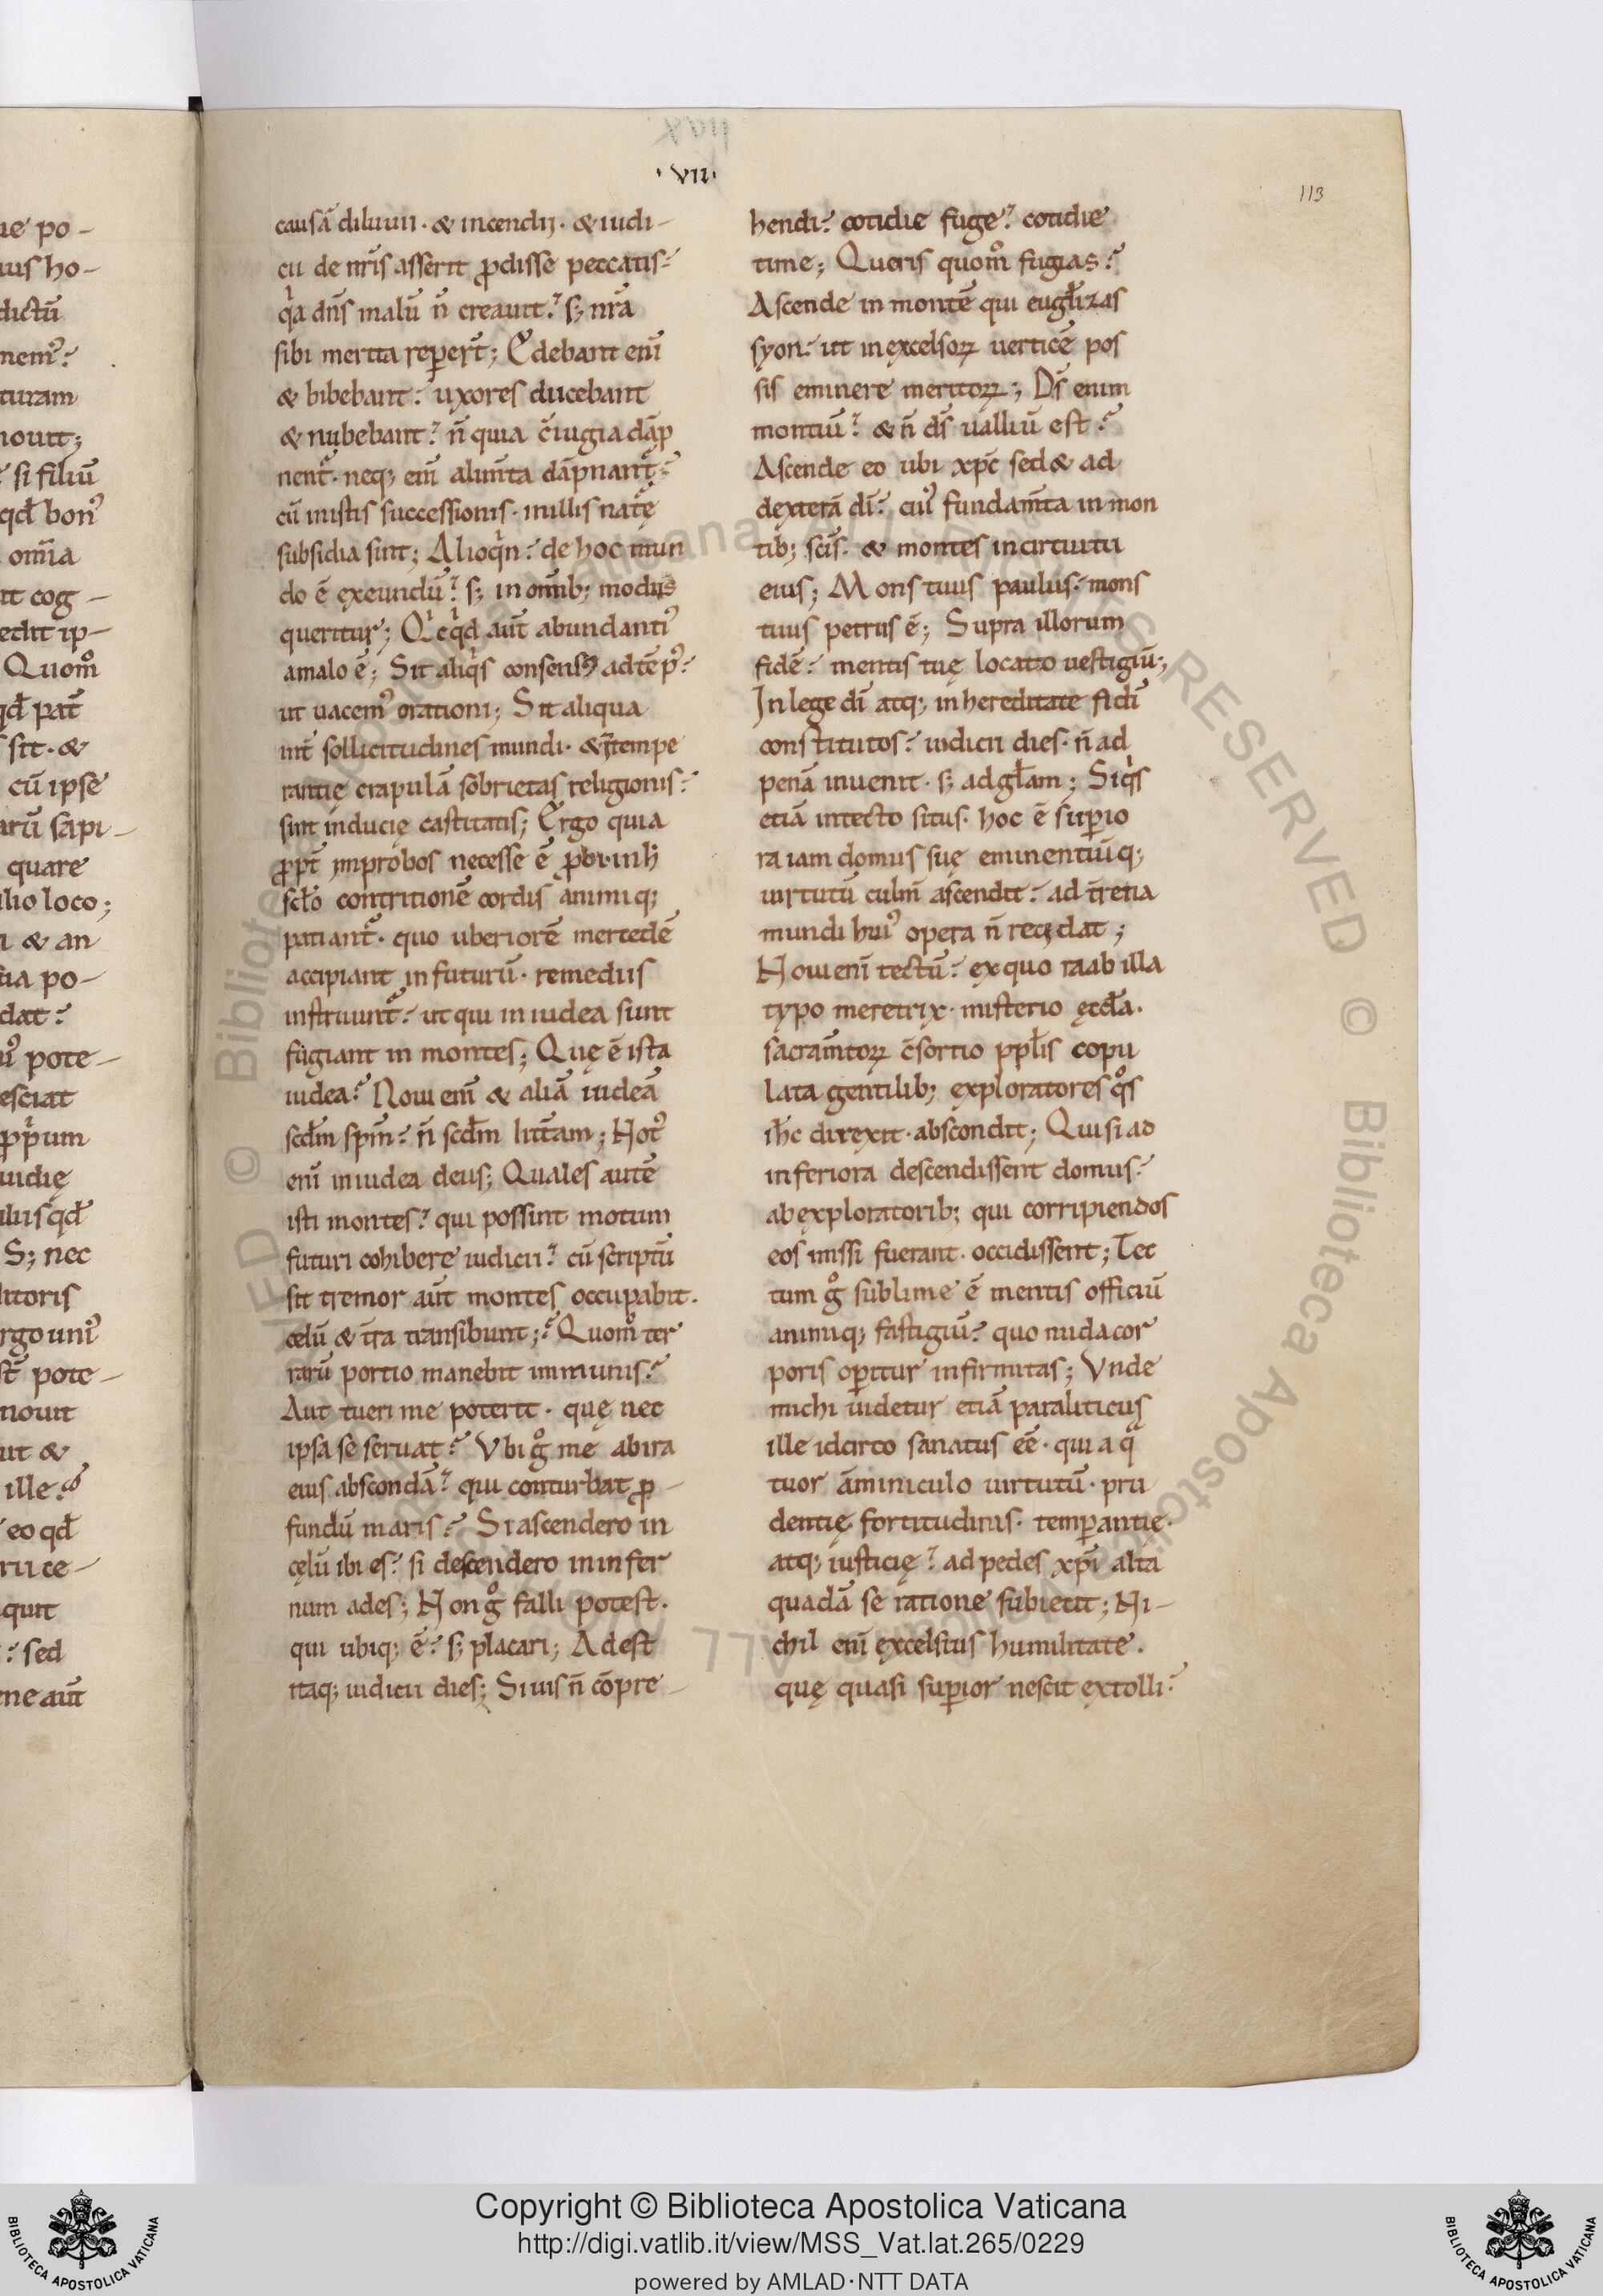 ꞏVIIꞏ
113
causā diluuii· & incendij· & iudi-
cii de nr̄is asserit ꝓdisse peccatis·
qͥa dn̄s malū n̄ creauit· s; nr̄a
sibi merita reꝑer̄t; Edebant eni̅
& bibebant· uxores ducebant
& nubebant· n̄ quia c̄iugia dāp
nent᷑· neq; eni̅ alim̄ta dāpnant᷑·
cū inistis successionis· in illis natę
subsidia sint; Alioqͥn· de hoc mun
do ē exeundū· s; in om̄ib; modus
queritur; Qͥcqͥd aut̄ abundantiꝰ
amalo ē; Sit aliqͥs consensꝰ ad tēpꝰ·
ut uacemꝰ orationi; Sit aliqua
int̄ sollicitudines mundi· & īntempe
rantię crapulā sobrietas religionis·
sint inducię castitatis; Ergo quia
ꝓpt̄ improbos necesse ē ꝓbi· in h̄
sc̄lo contritionē cordis animiq;
patiant᷑· quo uberiorē mercedē
accipiant in futurū· remediis
instruunt᷑· ut qui in iudea sunt
fugiant in montes; Quę ē ista
iudea· Noui eni̅ & aliā iudeā
scd̄m sp̄m· n̄ scd̄m litt̄am; Notꝰ
eni̅ in iudea deus; Quales autē
isti montes· qui possint motum
futuri cohibere iudicii· cū scriptū
sit tremor aut̄ montes occupabit·
celū & t̄ra transibunt; Quom̊ ter
rarū portio manebit immunis·
Aut tueri me poterit· quę nec
ipsa se seruat· Vbi gͦ me ab ira
eius abscondā· qui conturbat ꝓ-
fundū maris· Si ascendero in
cęlū ibi es· si descendero in infer
num ades; Non gͦ falli potest·
qui ubiq; ē· s; placari; Adest
itaq; iudicii dies; Si uis n̄ cōpre-
hendi· cotidie fuge· cotidie
time; Queris quom̊ fugias·
Ascende in montē qui eugl̄izas
syon· ut in excelsoꝝ uerticē pos
sis eminere meritoꝝ; Ds̄ enim
montiū· & n̄ ds̄ ualliū est·
Ascende eo ubi xp̄c sed& ad
dexterā dī· cuiꝰ fundam̄ta in mon
tib; sc̄is· & montes in circuitu
eius; Mons tuus paulus· mons
tuus petrus ē; Supra illorum
fidē· mentis tuę locato uestigiū;
In lege dī atq; in hereditate fidī
constitutos· iudicii dies· n̄ ad
penā inuenit· s; ad gl̄am; Siqͥs
etiā in tecto situs· hoc ē suꝑio
ra iam domus suę eminentiūq;
uirtutū culm̄ ascendit· ad t̄rena
mundi huiꝰ opera n̄ recidat;
Noui eni̅ tectū· ex quo raab illa
typo meretrix· misterio ęccl̄a·
sacram̄toꝝ c̄sortio ppl̄is copu
lata gentilib; exploratores qͦs
ih̄c direxit· abscondit; Qui si ad
inferiora descendissent domus·
ab exploratorib; qui corripiendos
eos missi fuerant· occidissent; Tec
tum gͦ sublime ē mentis officiū
animiq; fastigiū· quo nuda cor
poris oꝑitur infirmitas; Vnde
michi uidetur etiā paraliticus
ille idcirco sanatus eē· qui a qͣ
tuor āminiculo uirtutū· pru
dentię· fortitudinis· temꝑantię·
atq; iusticię· ad pedes xp̄i alta
quadā se ratione subiecit; Ni-
chil eni̅ ęxcelsius humilitate·
quę quasi suꝑior nescit extolli·
ue po-
uis ho-
dictū
nemꝰ·
turam
nouit;
si filiū
qd̄ bonꝰ
om̄ia
it cog-
edit ip-
Quom̊
qd̄ pat̄
sit· &
cū ipse
arū sapi-
quare
lio loco;
& an
po-
dat·
pote-
esciat
uidię
S; nec
litoris
rgo uniꝰ
pote-
nouit
ut &
ille·
eo qd̄
ru ce-
quit
sed
ne aut̄
Copyright © Biblioteca Apostolica Vaticana
http://digi.vatlib.it/view/MSS_Vat.lat.265/0229
powered by AMLAD·NTT DATA
BIBLIOTECA APOSTOLICA VATICANA
BIBLIOTECA APOSTOLICA VATICANA